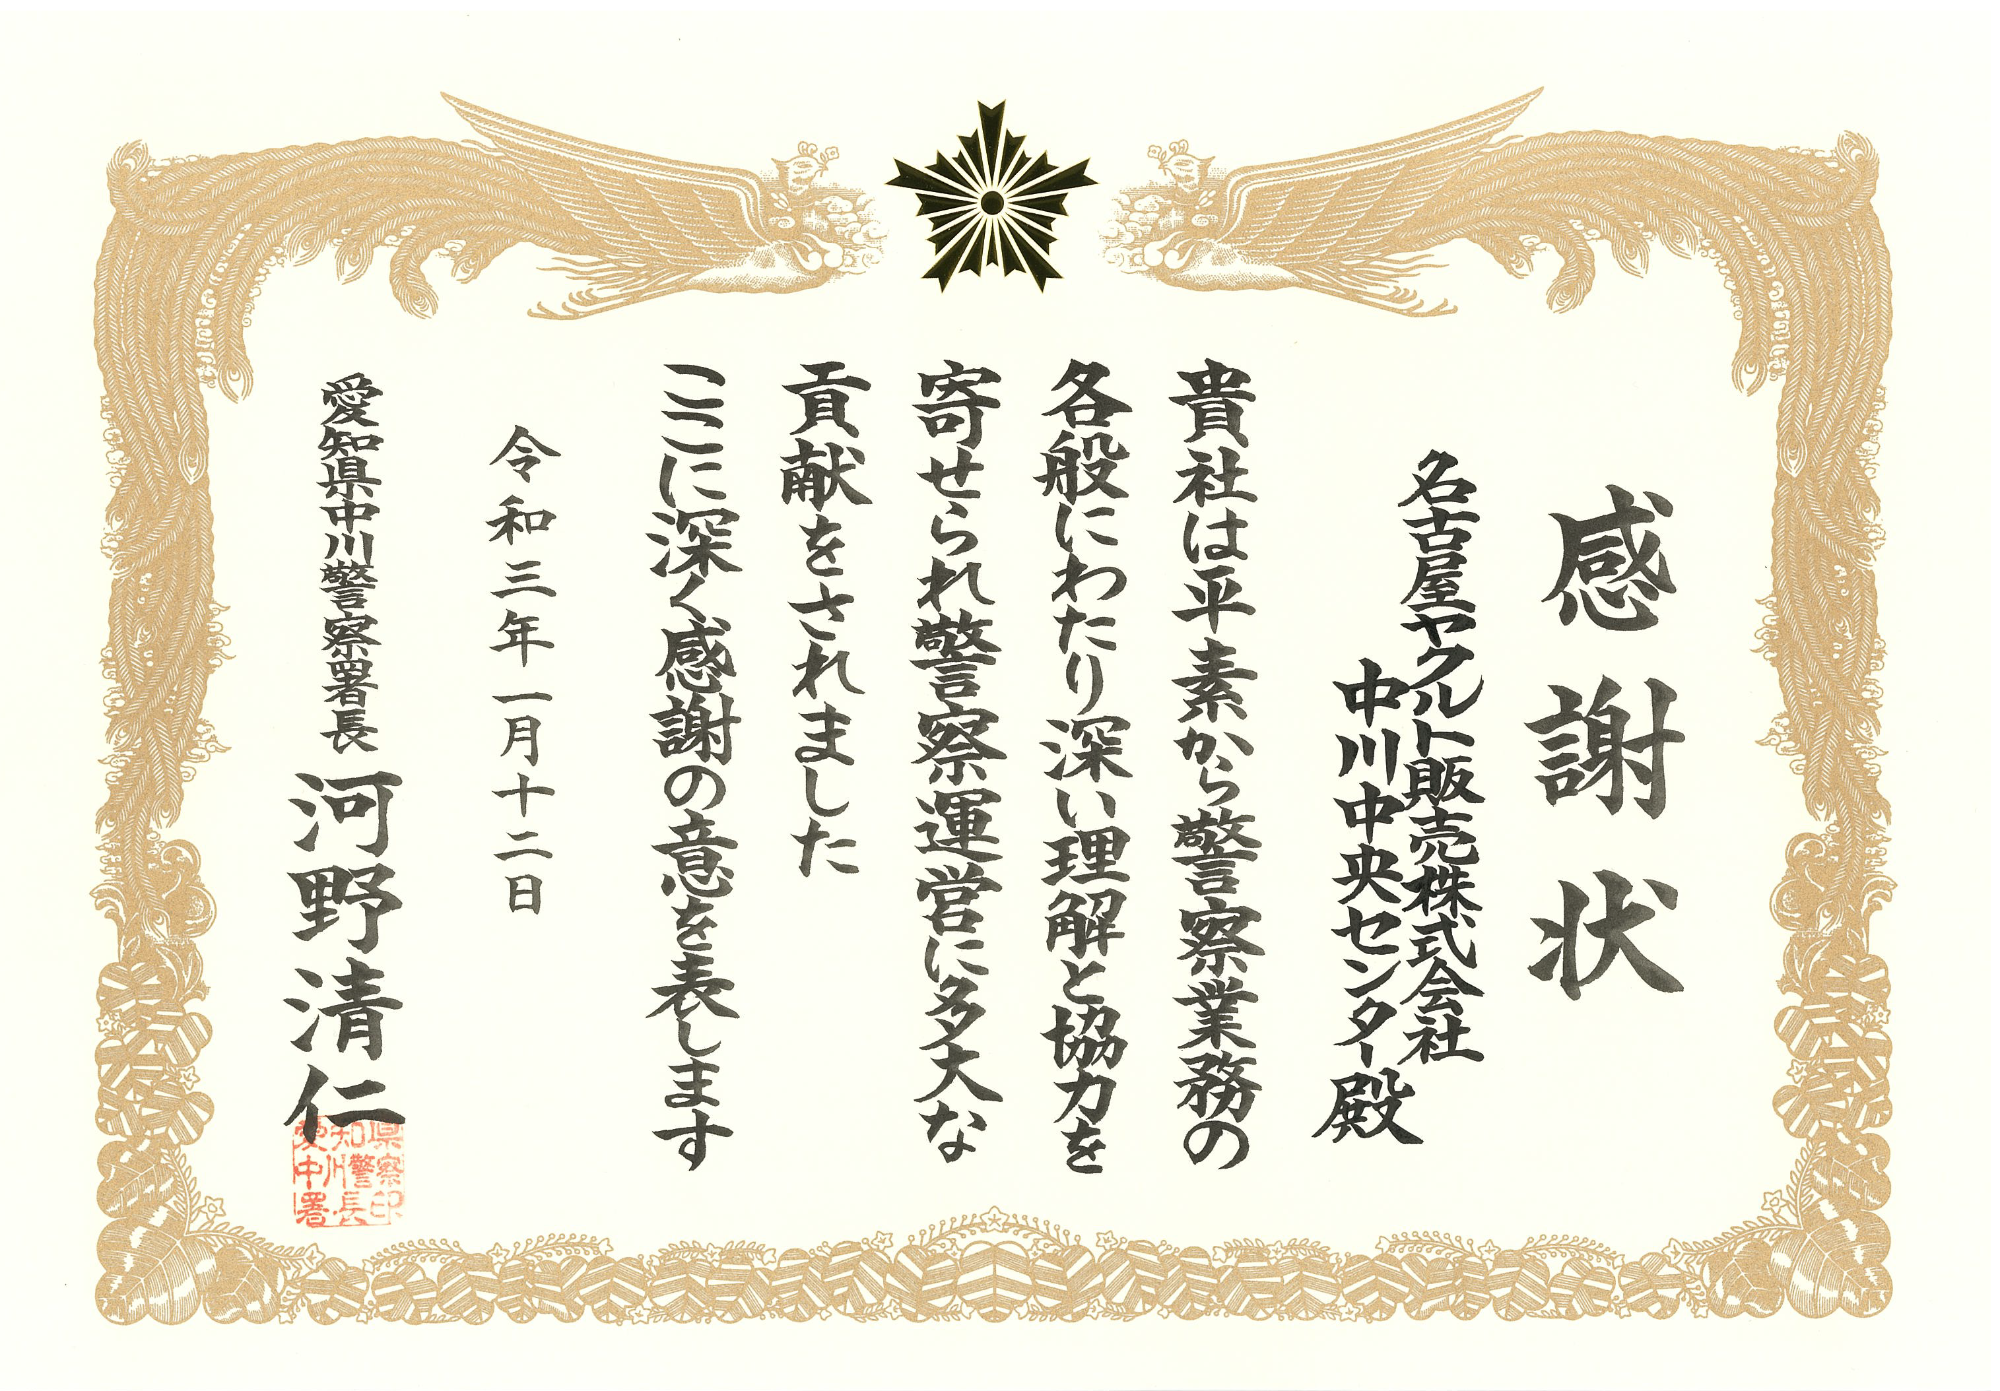 感謝状
名古屋ヤクルト販売株式会社
中川中央センター殿
貴社は平素から警察業務の
各般にわたり深い理解と協力を
寄せられ警察運営に多大な
貢献をされました
ここに深く感謝の意を表します
令和三年一月十二日
愛知県中川警察署長 河野清仁
愛知県
中川警察
署長印